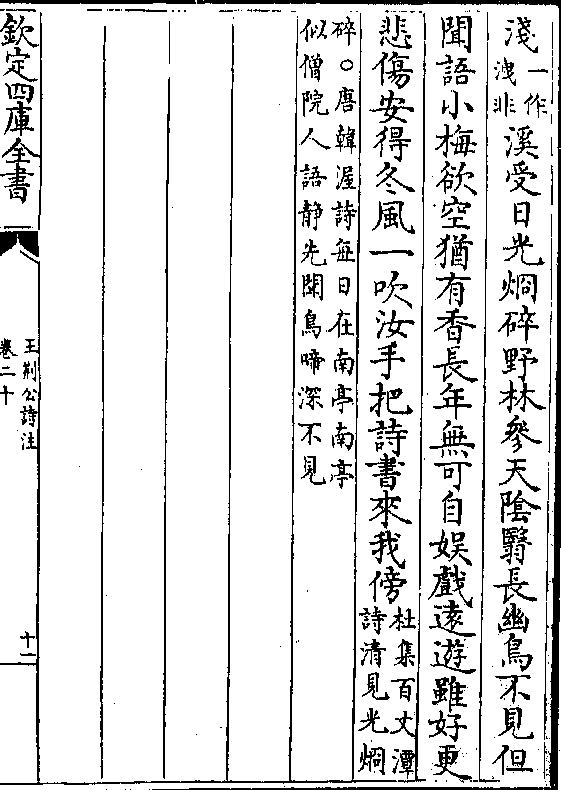 淺一作
洩非溪受日光炯碎野林參天陰翳長幽鳥不見但
聞語小梅欲空猶有香長年無可自娱戲遠遊雖好更
悲傷安得冬風一吹汝手把詩書來我傍杜集百丈潭
詩清見光炯
碎○唐韓渥詩每日在南亭南亭
似僧院人語静先聞鳥啼深不見
欽定四庫全書
王荆公詩注
卷二十
十一